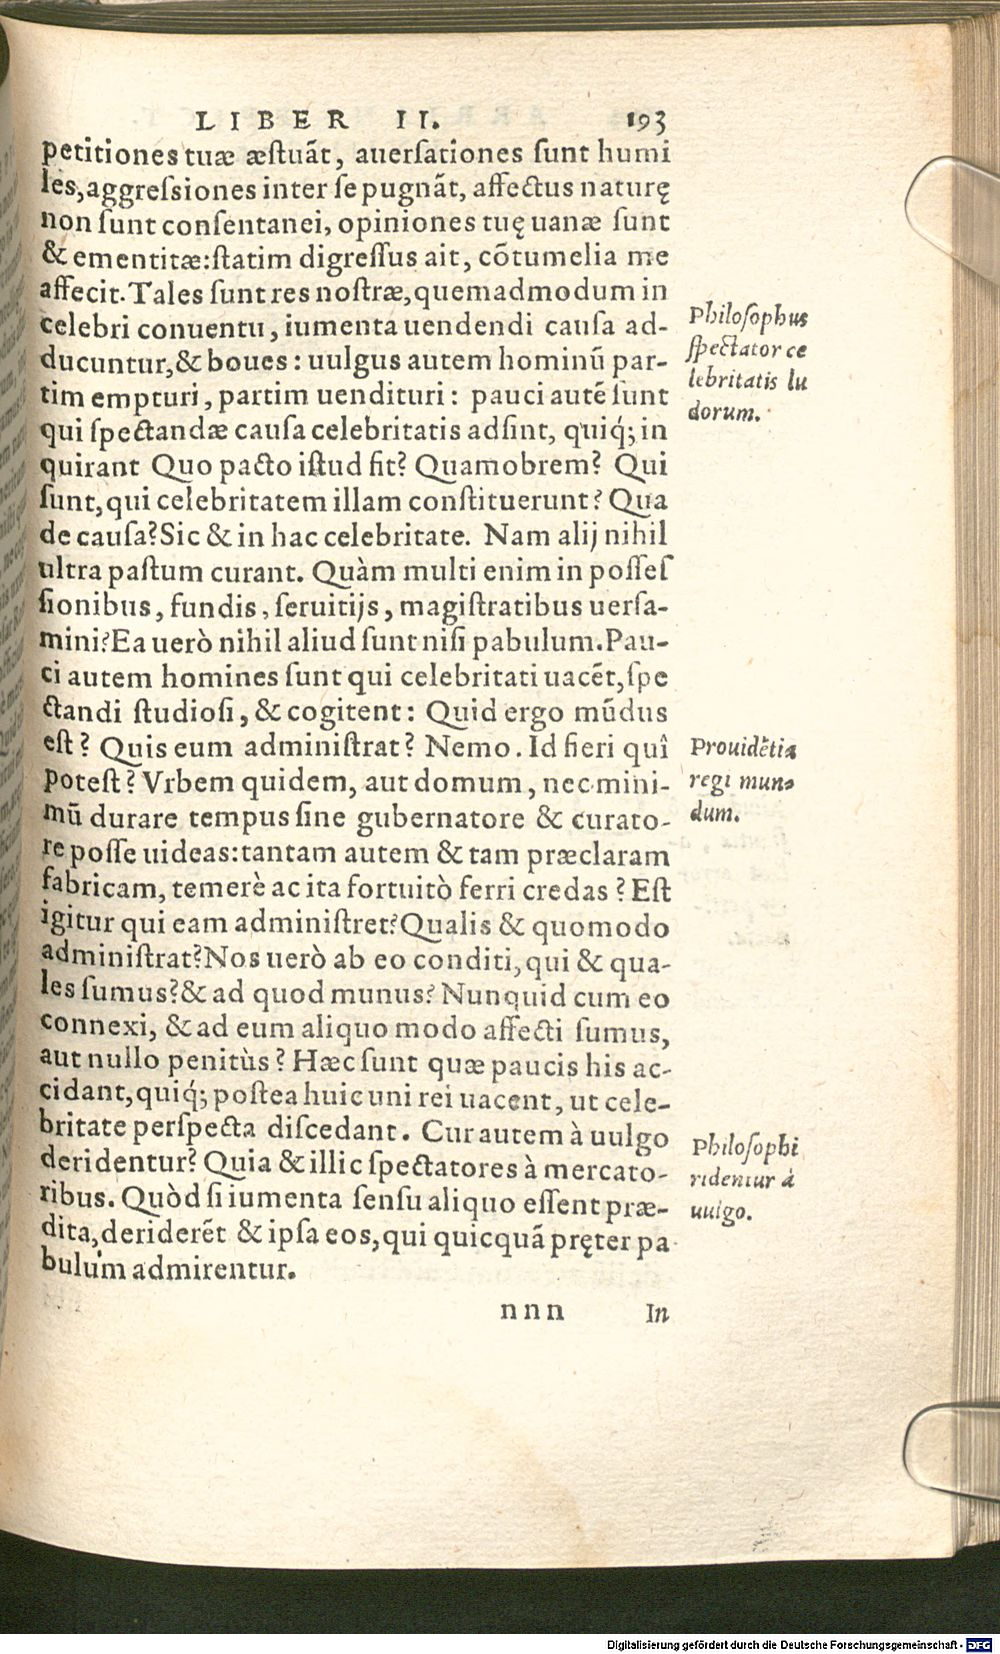 LIBER II. 193
petitiones tuæ æstuãt, auersationes sunt humi
les, aggressiones inter se pugnãt, affectus naturę
non sunt consentanei, opiniones tuę uanæ sunt
& ementitæ: statim digressus ait, cõtumelia me
affecit. Tales sunt res nostræ, quemadmodum in
celebri conuentu, iumenta uendendi causa ad-
ducuntur, & boues: uulgus autem hominũ par-
tim empturi, partim uendituri: pauci autẽ sunt
qui spectandæ causa celebritatis adsint, quiq́; in
quirant Quo pacto istud fit? Quamobrem? Qui
sunt, qui celebritatem illam constituerunt? Qua
de causa? Sic & in hac celebritate. Nam alij nihil
ultra pastum curant. Quàm multi enim in posses
sionibus, fundis, seruitijs, magistratibus uersa-
mini? Ea uerò nihil aliud sunt nisi pabulum. Pau-
ci autem homines sunt qui celebritati uacẽt, spe
ctandi studiosi, & cogitent: Quid ergo mũdus
est? Quis eum administrat? Nemo. Id fieri quî
potest? Vrbem quidem, aut domum, nec mini-
mũ durare tempus sine gubernatore & curato-
re posse uideas: tantam autem & tam præclaram
fabricam, temerè ac ita fortuitò ferri credas? Est
igitur qui eam administret? Qualis & quomodo
administrat? Nos uerò ab eo conditi, qui & qua-
les sumus? & ad quod munus? Nunquid cum eo
connexi, & ad eum aliquo modo affecti sumus,
aut nullo penitùs? Hæc sunt quæ paucis his ac-
cidant, quiq́; postea huic uni rei uacent, ut cele-
britate perspecta discedant. Cur autem à uulgo
deridentur? Quia & illic spectatores à mercato-
ribus. Quòd si iumenta sensu aliquo essent præ-
dita, deriderẽt & ipsa eos, qui quicquã pręter pa-
bulum admirentur.
nnn In
Philosophus
spectator ce
lebritatis lu
dorum.
Prouidẽtia
regi mun-
dum.
Philosophi
ridentur à
uulgo.
Digitalisierung gefördert durch die Deutsche Forschungsgemeinschaft - DFG